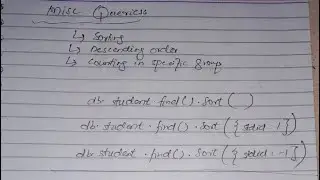 Misc Queries
↳ Sorting
↳ Descending order
↳ Counting in specific Group
db student find().sort()
db.student.find().sort({stdid:1})
db student.find().sort({stdid:-1})